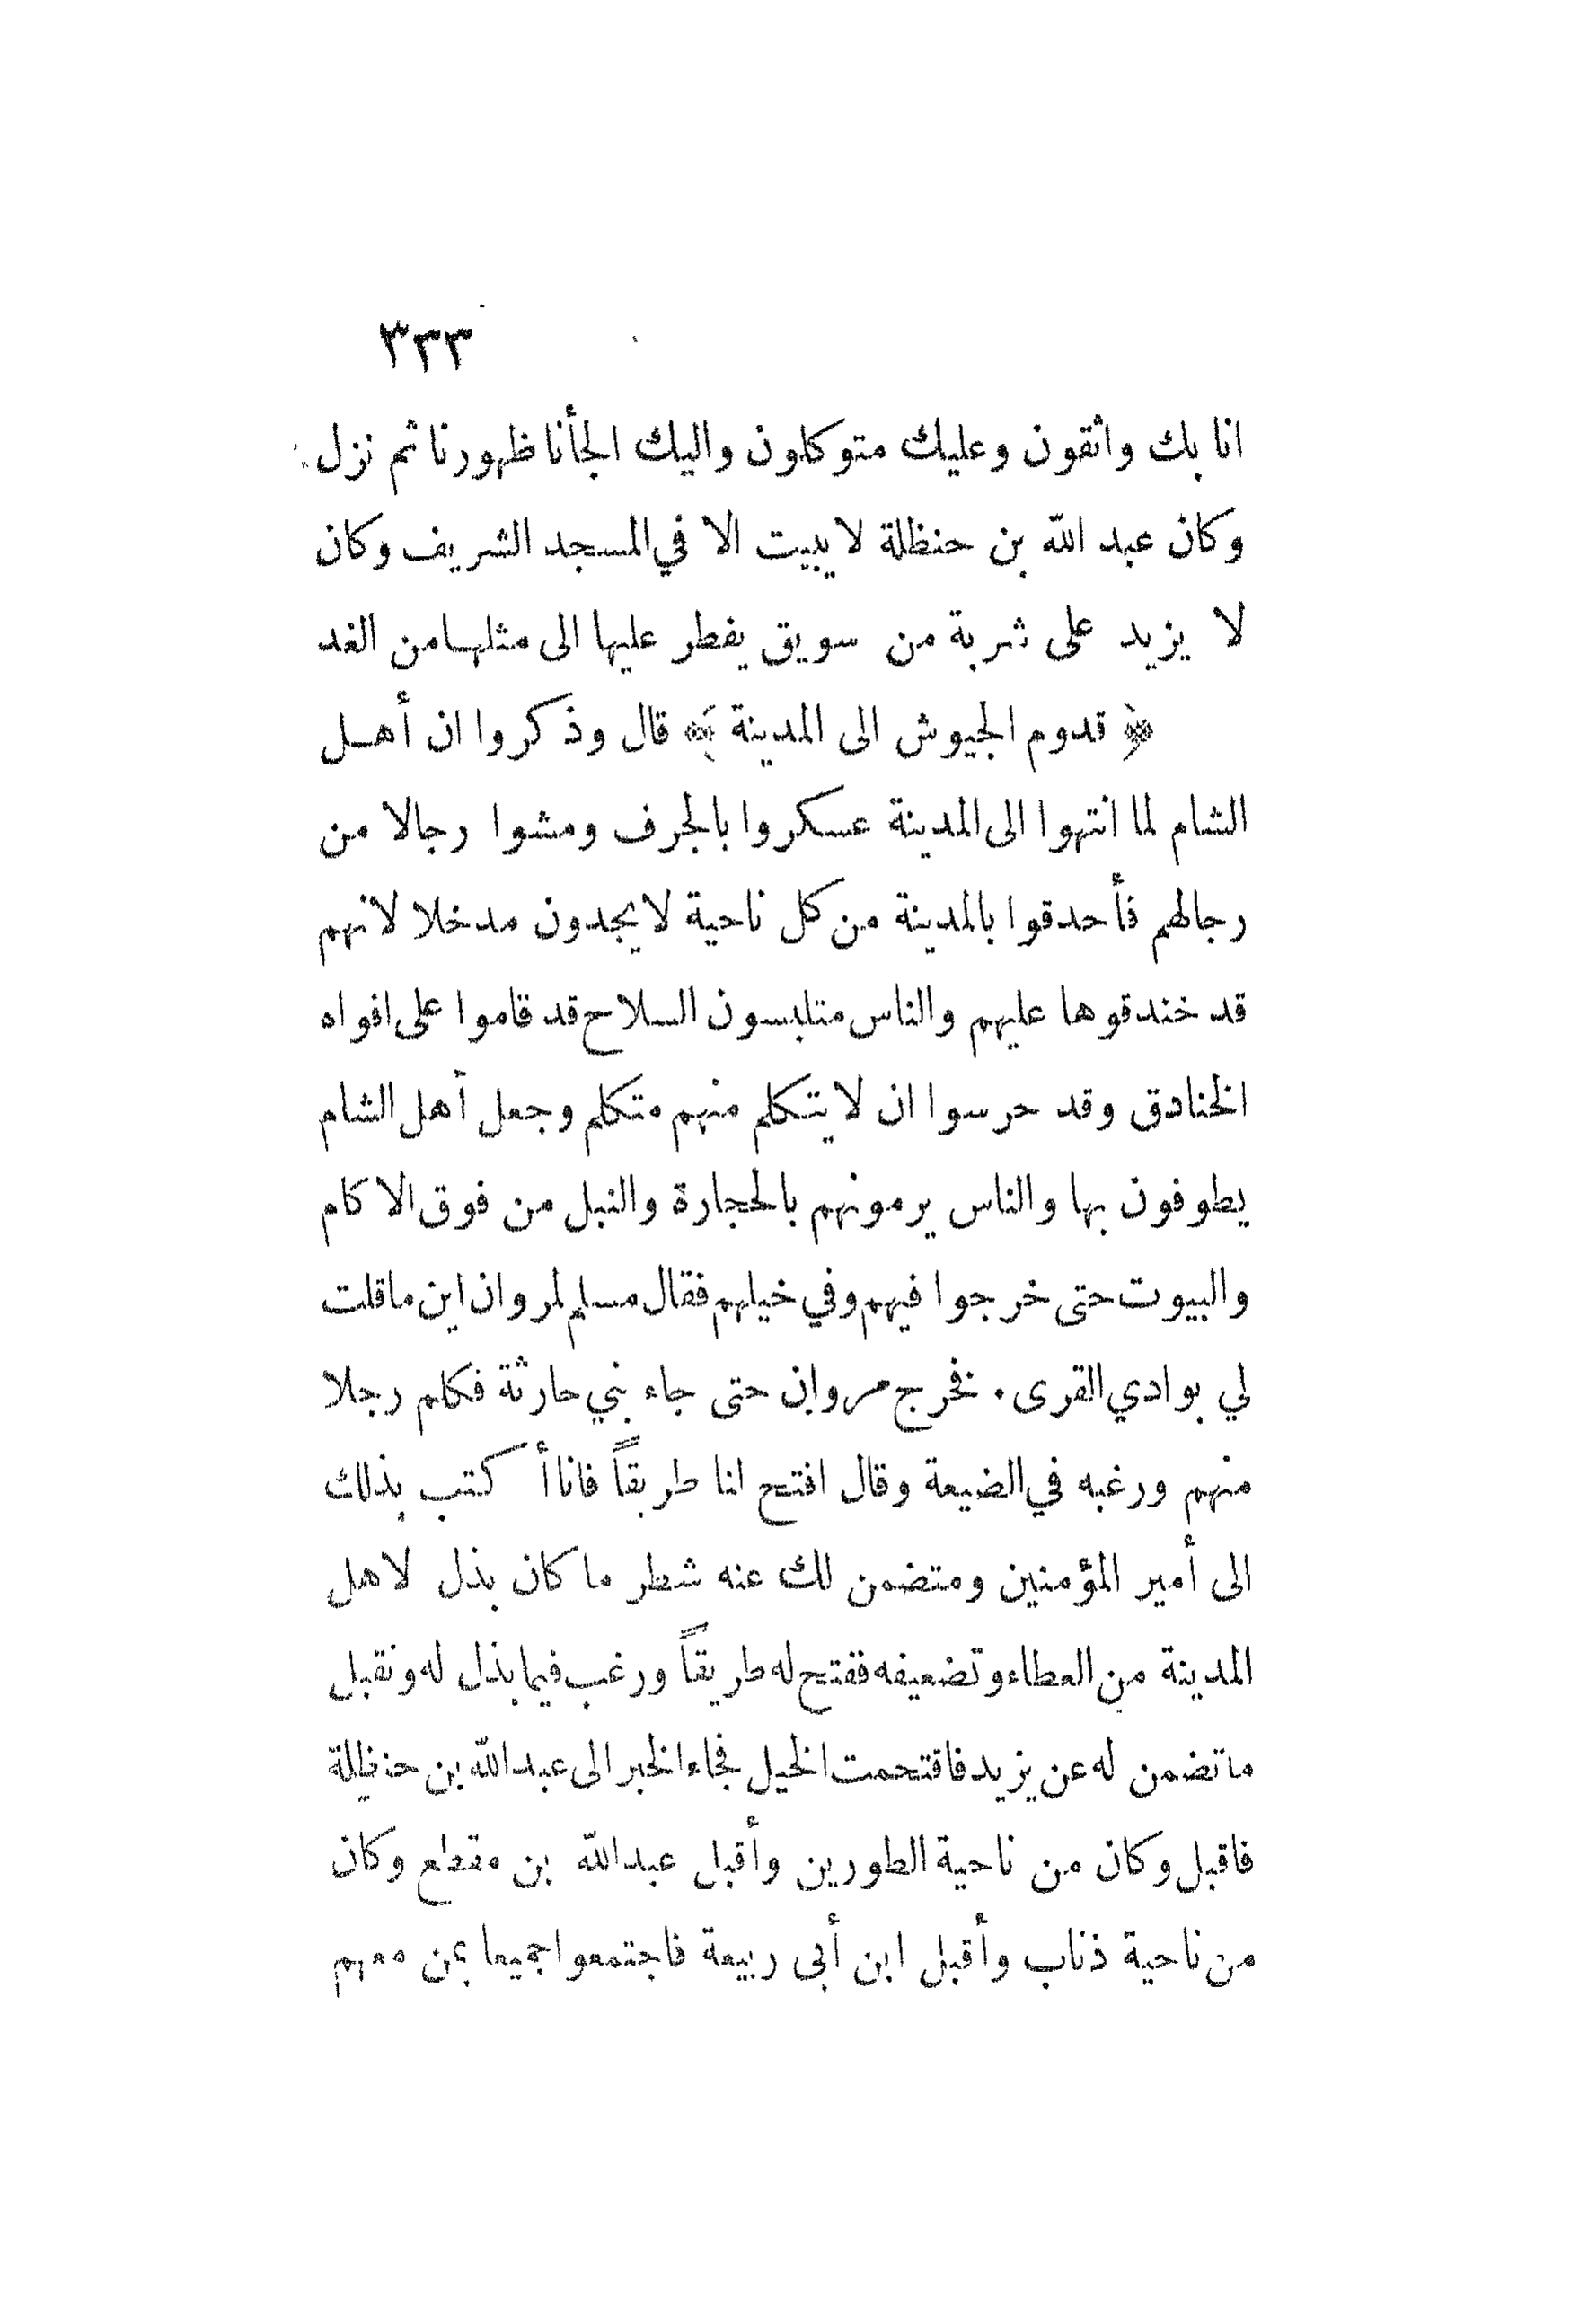 ٣٣٣
انا بك واثقون وعليك متوكلون واليك الجأنا ظهورنا ثم نزل
وكان عبد الله بن حنظلة لا يبيت الا في المسجد الشريف وكان
لا يزيد على شربة من سويق يفطر عليها الى مثلها من الغد
﴿ قدوم الجيوش الى المدينة ﴾ قال وذكروا ان أهل
الشام لما انتهوا الى المدينة عسكروا بالجرف ومشوا رجالا من
رجالهم فأحدقوا بالمدينة من كل ناحية لا يجدون مدخلا لانهم
قد خندقوها عليهم والناس متلبسون السلاح قد قاموا على افواه
الخنادق وقد حرسوا ان لا يتكلم منهم متكلم وجعل أهل الشام
يطوفون بها والناس يرمونهم بالحجارة والنبل من فوق الاكام
والبيوت حتى خرجوا فيهم وفي خيلهم فقال مسلم لمروان اين ماقلت
لي بوادي القرى . فخرج مروان حتى جاء بني حارثة فكلم رجلا
منهم ورغبه في الضيعة وقال افتح انا طريقاً فانا أكتب بذلك
الى أمير المؤمنين ومتضمن لك عنه شطر ما كان بذل لاهل
المدينة من العطاء وتضعيفه ففتح له طريقاً ورغب فيما بذل له وتقبل
ما تضمن له عن يزيد فاقتحمت الخيل فجاء الخبر الى عبد الله بن حنظلة
فاقبل وكان من ناحية الطورين وأقبل عبد الله بن مقطع وكان
من ناحية ذناب وأقبل ابن أبي ربيعة فاجتمعوا جميعا بمن معهم